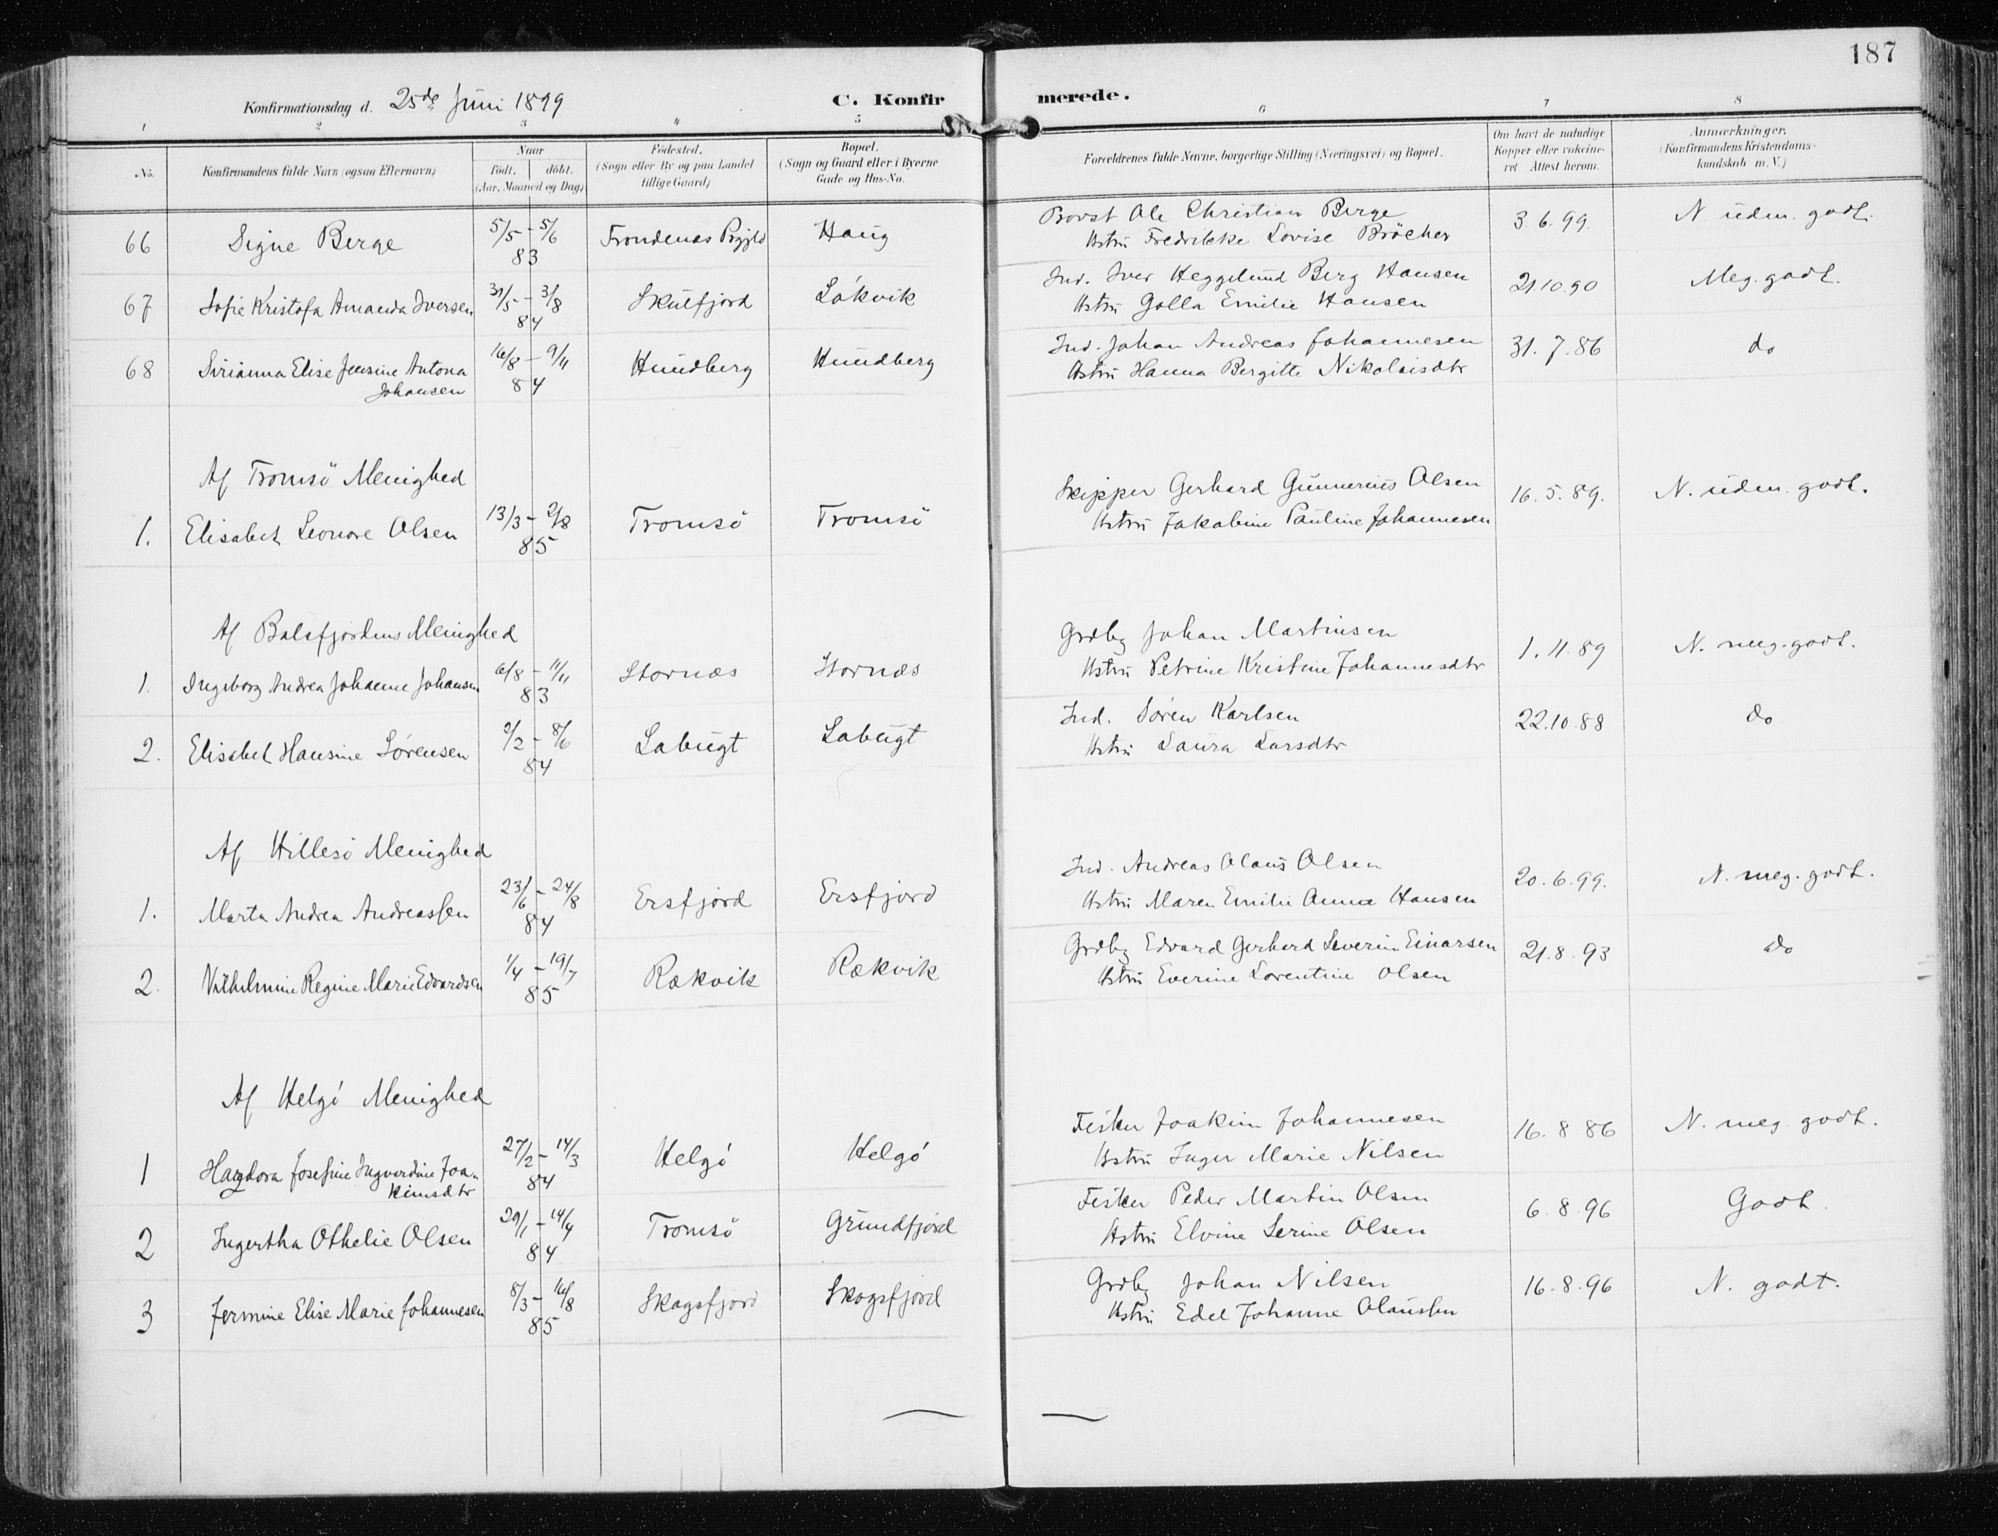 187
Konfirmationsdag d. 25de Juni 1899
C. Konfirmerede.
1 2 3 4 5 6 7 8
No.
Konfirmandens fulde Navn (ogsaa Efternavn)
Naar
födt. döbt.
(Aar, Maaned og Dag)
Födested.
(Sogn eller By og paa Landet
tillige Gaard)
Bopæl.
(Sogn og Gaard eller i Byerne
Gade og Hus-No.
Forældrenes fulde Navne, borgerlige Stilling (Næringsvei) og Bopæl.
Om havt de naturlige
Kopper eller vakcine-
ret Attest herom.
Anmærkninger.
(Konfirmandens Kristendoms-
kundskab m. V.)
66 Signe Berge 5/5 - 5/6 83 Trondenæs Haug
Ole Christian Berge 3.6.99. N udm. godt.
Hstru Fredrikke Lovise Bröcher
67 Sofie Kristofa Amanda Iversen 31/5 - 3/8 84 Skulfjord Lökvik
Ind. Iver Heggelund Berg Hansen 21.10.90 Meg. godt.
Hstru Golla Emilie Hansen
68 Sirianna Elise Jensine Antona
Johansen 16/8 - 9/11 84 Hundberg Hundberg
Ind. Johan Andreas Johannesen 31.7.86 do
Hstru Hanna Bergitte Nikolaisdtr
Af Tromsö Menighed
1. Elisabet Leonore Olsen 13/3 - 2/8 85 Tromsö Tromsö
Skipper Gerhard Gunnerius Olsen 16.5.89. N. udm. godt.
Hstru Jakobine Pauline Johannesen
Af Balsfjordens Menighed
1. Ingeborg Andrea Johanne Johansen 6/8 - 11/11 83 Stornæs Stornæs
Grdbg Johan Martinsen 1.11.89 N. meg. godt.
Hstru Petrine Kristine Johannesdtr
2. Elisabet Hansine Sørensen 2/2 - 8/6 84 Sabugt Sabugt
Ind. Sören Karlsen 22.10.88 do
Hstru Laura Larsdtr
Af Hillesö Menighed
1. Marta Andrea Andreassen 23/6 - 24/8 84 Ersfjord Ersfjord
Ind. Andreas Olaus Olsen 20.6.99. N. meg. godt.
Hstru Maren Emilie Anna Hansen
2. Vilhelmine Regine Marie Edvardsen 1/4 - 19/7 85 Rækvik Rækvik
Grdbg Edvard Gerhard Severin Einarsen 21.8.93 do
Hstru Everine Lorentine Olsen
Af Helgö Menighed
1 Hagdora Josefine Ingvordine Joa-
kimsdtr 27/2 - 14/3 84 Helgö Helgö
Fisker Joakim Johannesen 16.8 86 N. meg. godt.
Hstru Inger Marie Nilsen
2 Ingertha Othelie Olsen 29/1 - 14/4 84 Tromsö Grundfjord
Fisker Peder Martin Olsen 6.8.96 Godt.
Hstru Elvine Serine Olsen
3 Jermine Elise Marie Johannesen 8/3 - 16/8 85 Skogsfjord Skogsfjord
Grdbg Johan Nilsen 16.8.96 N. godt.
Hstru Edel Johanne Olaussen